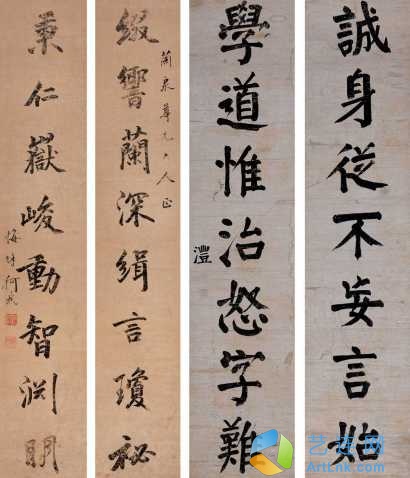 誠身從不妄言始
學道惟治怒字難
澧
綴響蘭深緝言瓊秘
蘭泉尊兄大人正
秉仁嶽峻動智淵明
艺连网
ArtLnk.com